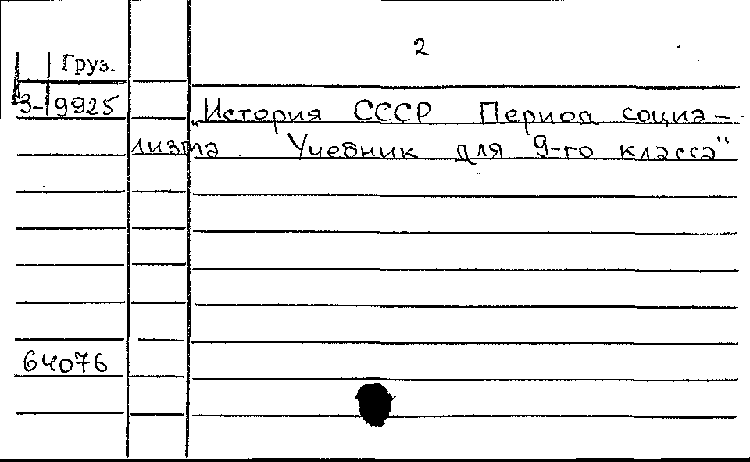 2
Груз.
3-9925
„История СССР Период социа-
лизма Учебник для 9-го класса"
64076